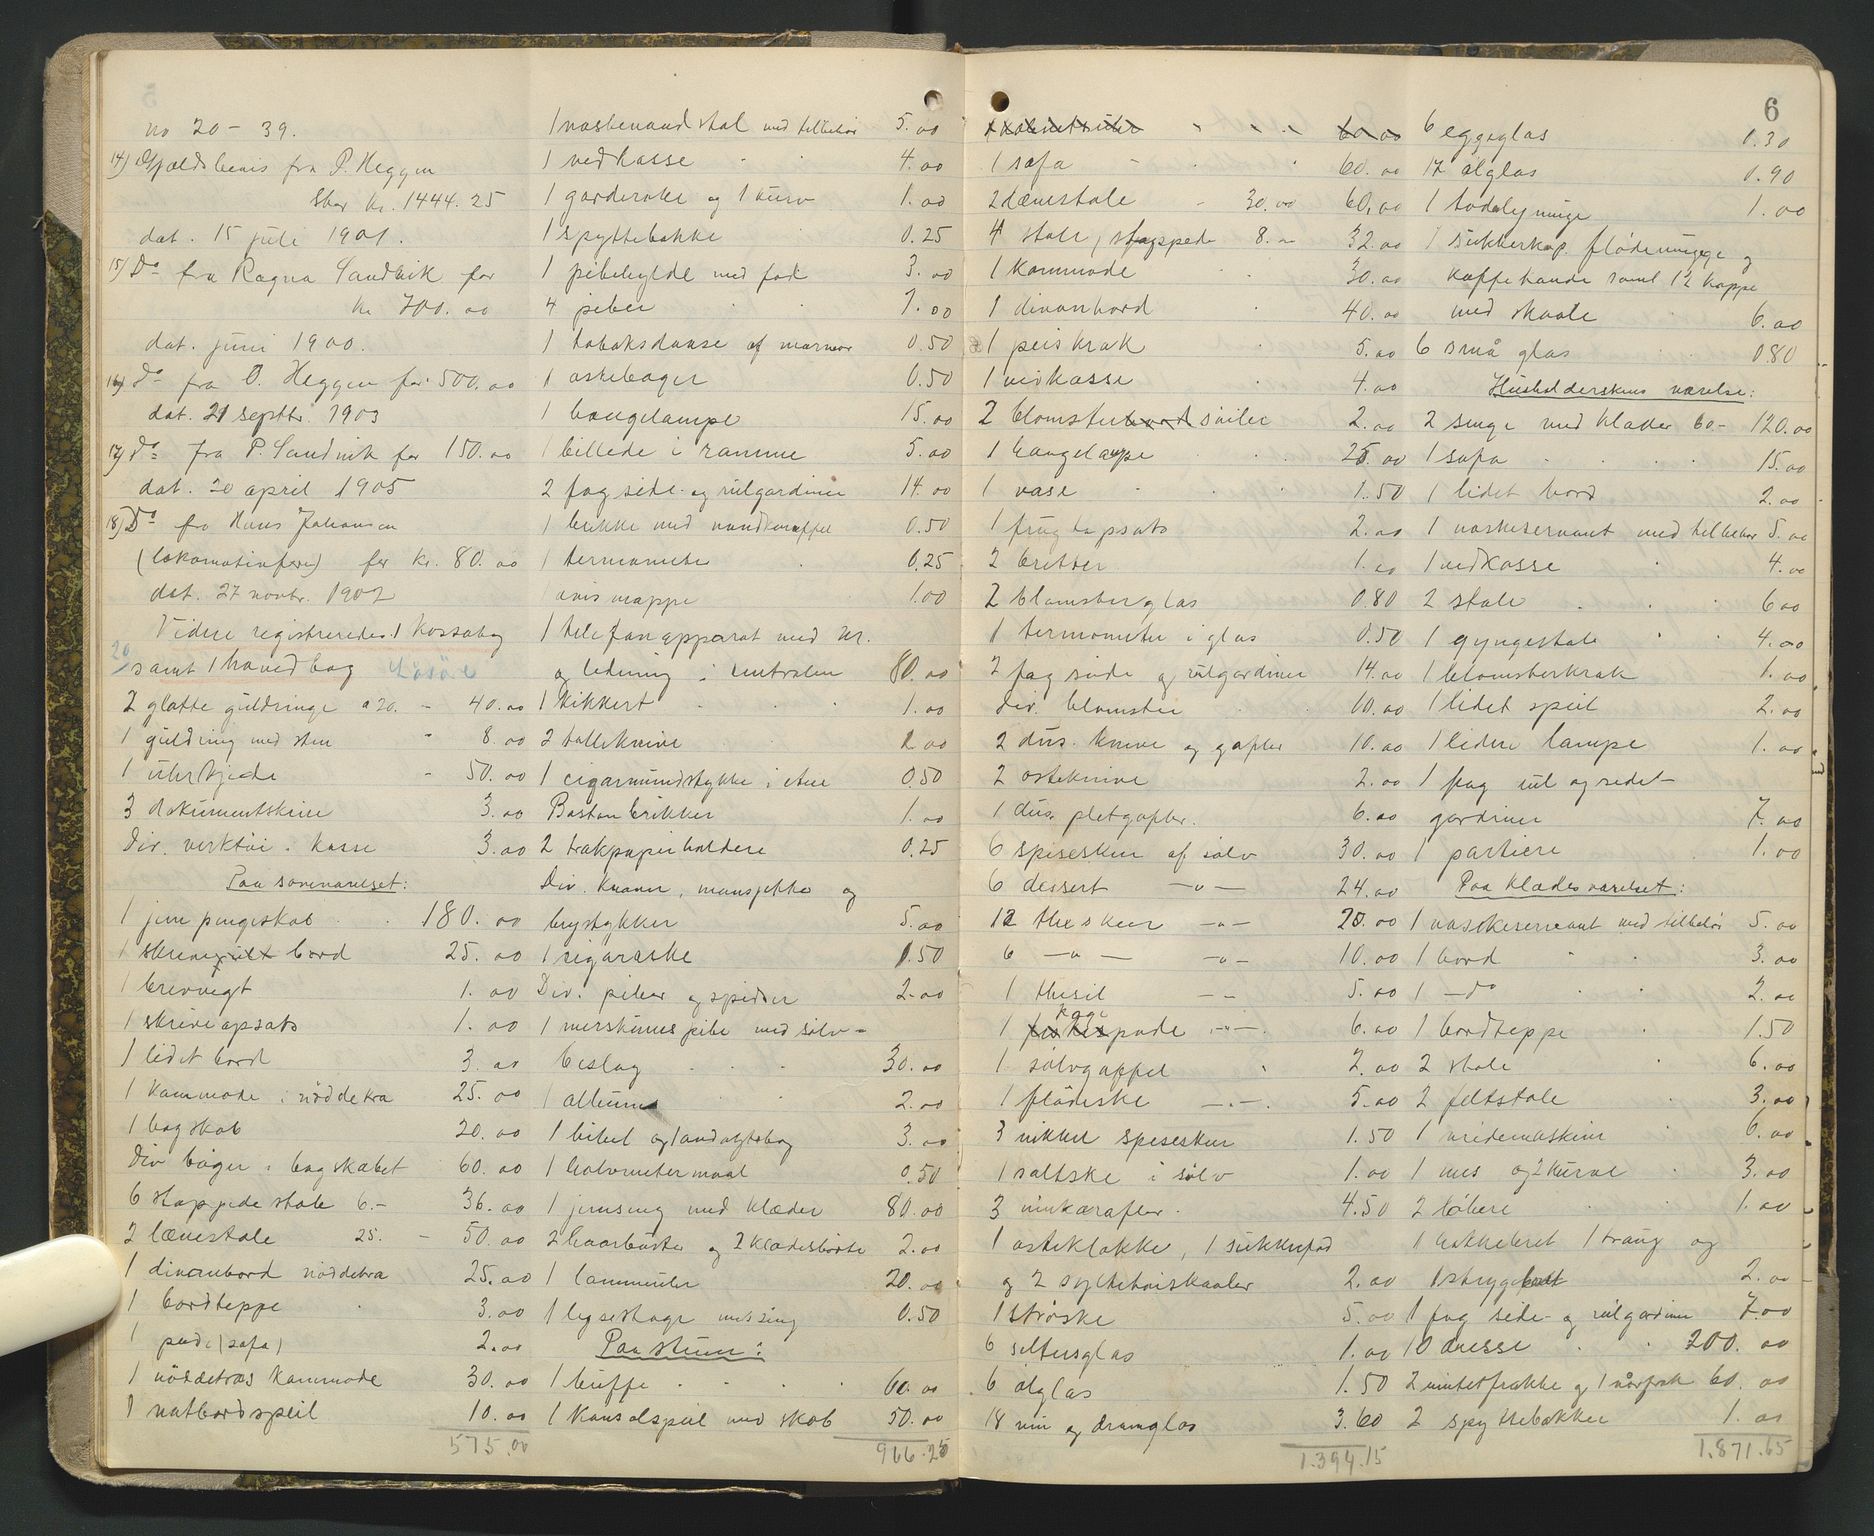 no 20 - 39.
14) Gjældsbevis fra P. Heggen
stor kr. 1444.25
dat. 15 juli 1901.
15) Do fra Ragna Sandvik for
kr. 700.00
dat. juni 1900.
16) do fra O. Heggen for 500.00
dat. 21 septbr. 1903
17) do fra P. Sandvik for 150.00
dat. 20 april 1905
18) Do fra Hans Johansen
(lokomotivfører) for kr. 80.00
dat. 27 novbr. 1902
Videre registreredes 1 kassabog
20/ samt 1 hovedbog
2 glatte guldringe a 20. - 40.00
1 guldring med sten " 8.00
1 uhrkjede - 50.00
3 dokumentskrin 3.00
Div. verktøi i kasse 3.00
Paa soveværelset:
1 jern pengeskab 180.00
1 skrive bord 25.00
1 brevvegt 1.00
1 skriveopsats 1.00
1 lidet bord 3.00
1 kommode i nøddetræ 25.00
1 bogskab 20.00
Div bøger i bogskabet 60.00
6 stoppede stole 6.- 36.00
2 lænestole 25. - 50.00
1 divanbord nøddetræ 25.00
1 bordteppe 3.00
1 pude (sofa) 2.00
1 nøddetræs kommode 30.00
1 natbordspeil 10.00
575.00
1 vaskevandstol med tilbehør 5.00
1 vedkasse 4.00
1 garderobe og 1 kurv 1.00
1 spyttebakke 0.25
1 pibehylde med fod 3.00
4 piber 7.00
1 tobaksdaase af marmor 0.50
1 askebæger 0.50
1 hængelampe 15.00
1 billede i ramme 5.00
2 fag side- og rulgardiner 14.00
1 brikke med vandkaraffel 0.50
1 termometer 0.25
1 avismappe 1.00
1 telefonapparat med nr.
og ledning i centralen 80.00
1 kikkert 1.00
2 ælleknive 2.00
1 cigarmundstykke i etue 0.50
Boston brikker 1.00
2 trækpapirholdere 0.25
Div. kraver, mansjetter og
brystykker 5.00
1 sigaræske 1.50
Div. piber og spidser 2.00
1 merskumspibe med sølv-
beslag 30.00
1 album 2.00
1 bibel og 1 andagtsbog 3.00
1 halvmetermaal 0.50
1 jernseng med klæder 80.00
2 haarbørster og 2 klædesbørste 2.00
1 lommeuhr 20.00
1 lysestage messing 0.50
Paa stuen:
1 buffe 60.00
1 konsolspeil med skab 50.00
966.25
6
60.00
1 sofa 60.00
2 lænestole - 30.00 60.00
4 stole, stoppede 8.- 32.00
1 kommode 30.00
1 divanbord 40.00
1 peiskrak 5.00
1 vedkasse 4.00
2 blomsterbord søiler 2.00
1 hængelampe 25.00
1 vase 1.50
1 frugtopsats 2.00
2 bretter 1.00
2 blomsterglas 0.80
1 termometer i glas 0.50
2 fag side og rulgardiner 14.00
Div. blomster 10.00
2 dus. knive og gafler 10.00
2 osteknive 2.00
1 dus. pletgafler. 6.00
6 spiseskeer af sølv 30.00
6 dessert -"- 24.00
12 theskeer -"- 20.00
6 -"- -"- 10.00
1 thesil -- 5.00
1 fiskespade kage -"-. 6.00
1 sølvgaffel 2.00
1 flødeske -"-. 5.00
3 nikkel spiseskeer 1.50
1 saltske i sølv 1.00
3 vinkarafler. 4.50
1 osteklokke, 1 sukkerfad
og 2 syltetøiskaaler 2.00
1 strøske 5.00
6 seltersglas 1.00
6 ølglas 1.50
18 vin og dramglas 3.60
1.394.15
6 eggeglas 0.30
17 ølglas 0.90
1 todelymugge 1.00
1 sukkerkop flødemugge og
kaffekande samt 12 koppe
med skaale 6.00
6 små glas 0.80
Husholderskens værelse:
2 senge med klæder 60.- 120.00
1 sofa 15.00
1 lidet bord 2.00
1 vaskeservant med tilbehør 5.00
1 vedkasse 4.00
2 stole 6.00
1 gyngestole 4.00
1 blomsterkrak 1.00
1 lidet speil 2.00
1 liden lampe 1.00
1 fag rul og sidet-
gardiner 7.00
1 portiere 1.00
Paa klædesværelset:
1 vaskeservant med tilbehør 5.00
1 bord 3.00
1 - do 2.00
1 bordteppe 1.50
2 stole 6.00
2 feltstole 3.00
1 vridemaskine 6.00
1 mes og 2 kurve 3.00
2 løbere 1.00
1 hakkebret 1 traug og
1 strygebret 2.00
1 fag side- og rulgardiner 7.00
10 dresse 200.00
2 vinterfrakke og 1 vårfrak 60.00
2 spyttebakker 1.00
1.871.65